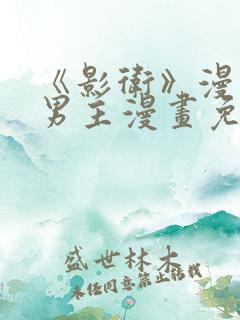 《影衛》漫
男主漫畫免
盛世林木
未经同意禁止转载